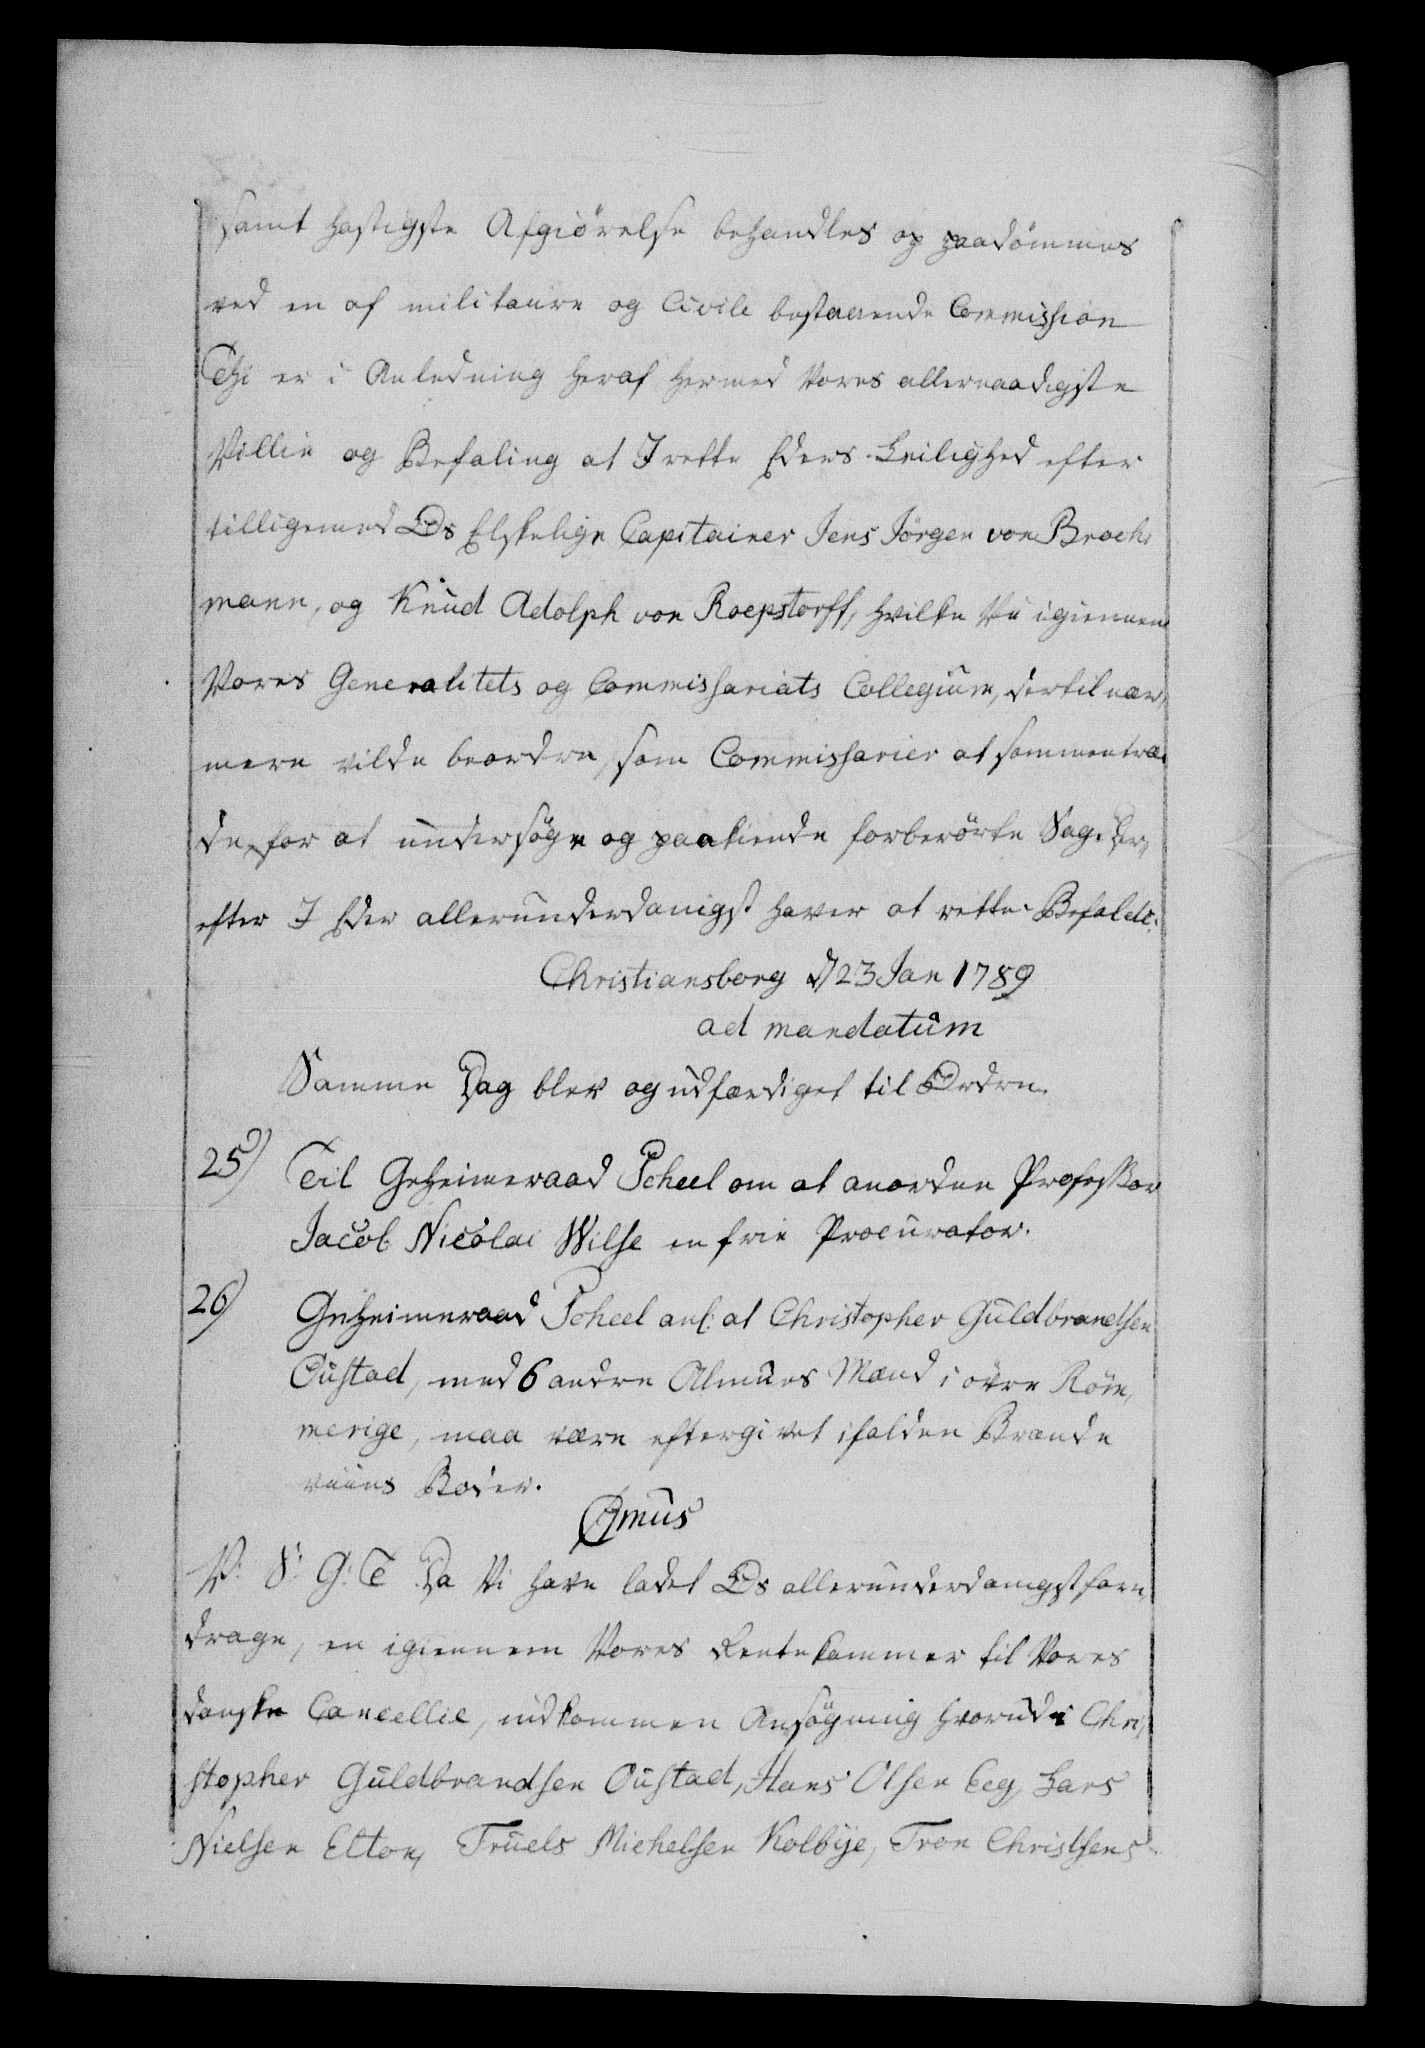 samt hastigste Afgiörelse behandles og paadömmes
ved en af militaire og Civile bestaaende Commission
Thi er i Anledning heraf hermed Vores allernaadigste
Villie og Befaling at I rette Eders Leilighed efter
tilligemed Os Elskelige Capitainer Jens Jörgen von Brock-
mann, og Knud Adolph von Roepstorff, hvilke Vi igiennem
Vores Generalitets og Commissariats Collegium, dertil nær-
mere vilde beordre, som Commissarier at sammentræ-
de, for at undersöge og paakiende forberörte Sag. Der-
efter I Eder allerunderdanigst haver at rette. Befalde.
Christiansborg d 23 Jan 1789
ad mandatum
Samme Dag blev og udfærdiget til Ordre.
25) Til Geheimeraad Scheel om at anordne Professor
Jacob Nicolai Wilse en frie Procurator.
26) Geheimeraad Scheel anl: at Christopher Guldbrandsen
Oustad, med 6 andre Almues Mænd i övre Rom-
merige, maa være eftergivet ifalden Brænde
viins Böder.
C7mus
V: S: G: T Da Vi have ladet Os allerunderdanigst fore-
drage, en igiennem Vores Rentekammer til Vores
danske Cancellie, indkommen Ansögning hvorudi Chri-
stopher Guldbrandsen Oustad, Hans Olsen Eeg, Lars
Nielsen Elton, Truels Michelsen Kolbye, Tron Christsens